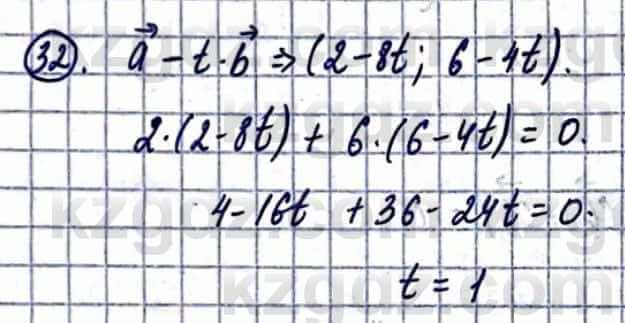 32. a⃗ - t·b⃗ ⇒ (2-8t; 6-4t).
2·(2-8t) + 6·(6-4t) = 0.
4-16t + 36-24t = 0.
t = 1